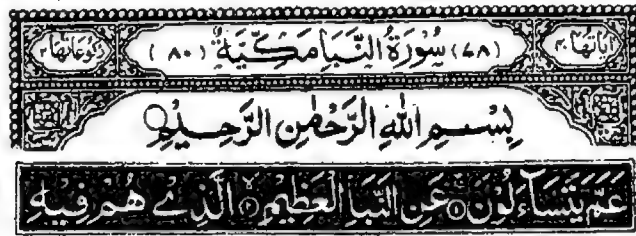 اٰيَاتُهَا ٤٠ (٧٨) سُوْرَةُ النَّبَاِ مَكِّيَّةٌ (٨٠) رُكُوْعَاتُهَا ٢
بِسْمِ اللّٰهِ الرَّحْمٰنِ الرَّحِيْمِ
عَمَّ يَتَسَآءَلُوْنَ ١ عَنِ النَّبَاِ الْعَظِيْمِ ٢ الَّذِىْ هُمْ فِيْهِ